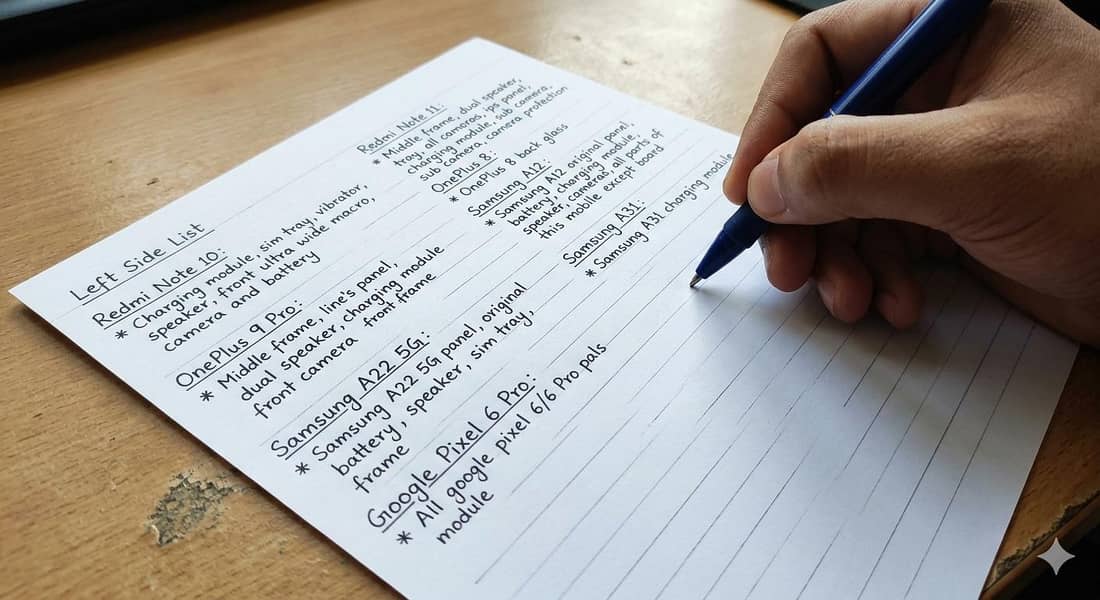 Left Side List
Redmi Note 10:
* Charging module, sim tray, vibrator,
speaker, front ultra wide macro,
camera and battery
OnePlus 9 Pro:
* Middle frame, line's panel,
dual speaker, charging module
front camera front frame
Samsung A22 5G:
* Samsung A22 5G panel, original
battery, speaker, sim tray,
frame
Google Pixel 6 Pro:
* All google pixel 6/6 Pro pals
module
Redmi Note 11:
* Middle frame, dual speaker,
tray, all cameras, ips panel,
charging module, sub camera,
sub camera, camera protection
OnePlus 8:
* OnePlus 8 back glass
Samsung A12:
* Samsung A12 original panel,
battery, charging module,
speaker, cameras, all parts of
this mobile except board
Samsung A31:
* Samsung A31 charging module